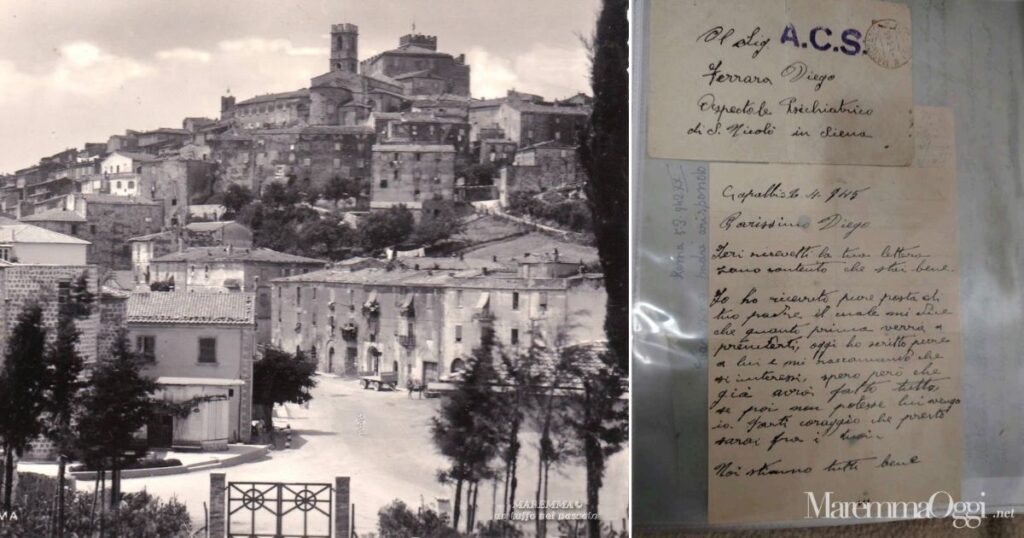 Al Sig
A.C.S.
Ferrara Diego
Ospedale Psichiatrico
di S. Nicolò in Siena
Capalbio 4. 945
Carissimo Diego
Ieri ricevetti la tua lettera
sono contento che stai bene.
Io ho ricevuto pure posta di
tuo padre il quale mi dice
che quanti prima verrà a
prenderti, oggi ho scritto pure
a lui e mi raccomando che
si interessi, spero però che
già avrà fatto tutto,
se poi non potesse lui vengo
io. Fatti coraggio che presto
sarai fra i tuoi.
Noi stiamo tutti bene
Roma
MAREMMA
un tuffo nel passato
MA
MaremmaOggi.net